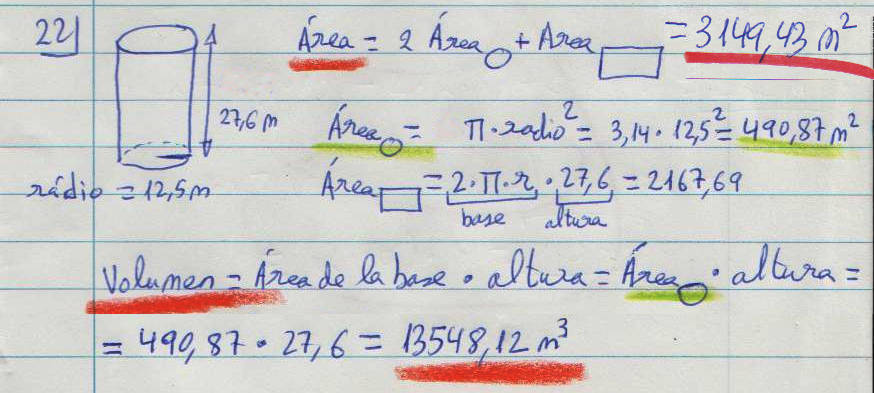 22
Área = 2 Área○ + Area▭ = 3149,43 m²
27,6 m
Área○ = π · radio² = 3,14 · 12,5² = 490,87 m²
rádio = 12,5 m
Área▭ = 2 · π · r · 27,6 = 2167,69
base altura
Volumen = Área de la base · altura = Área○ · altura =
= 490,87 · 27,6 = 13548,12 m³